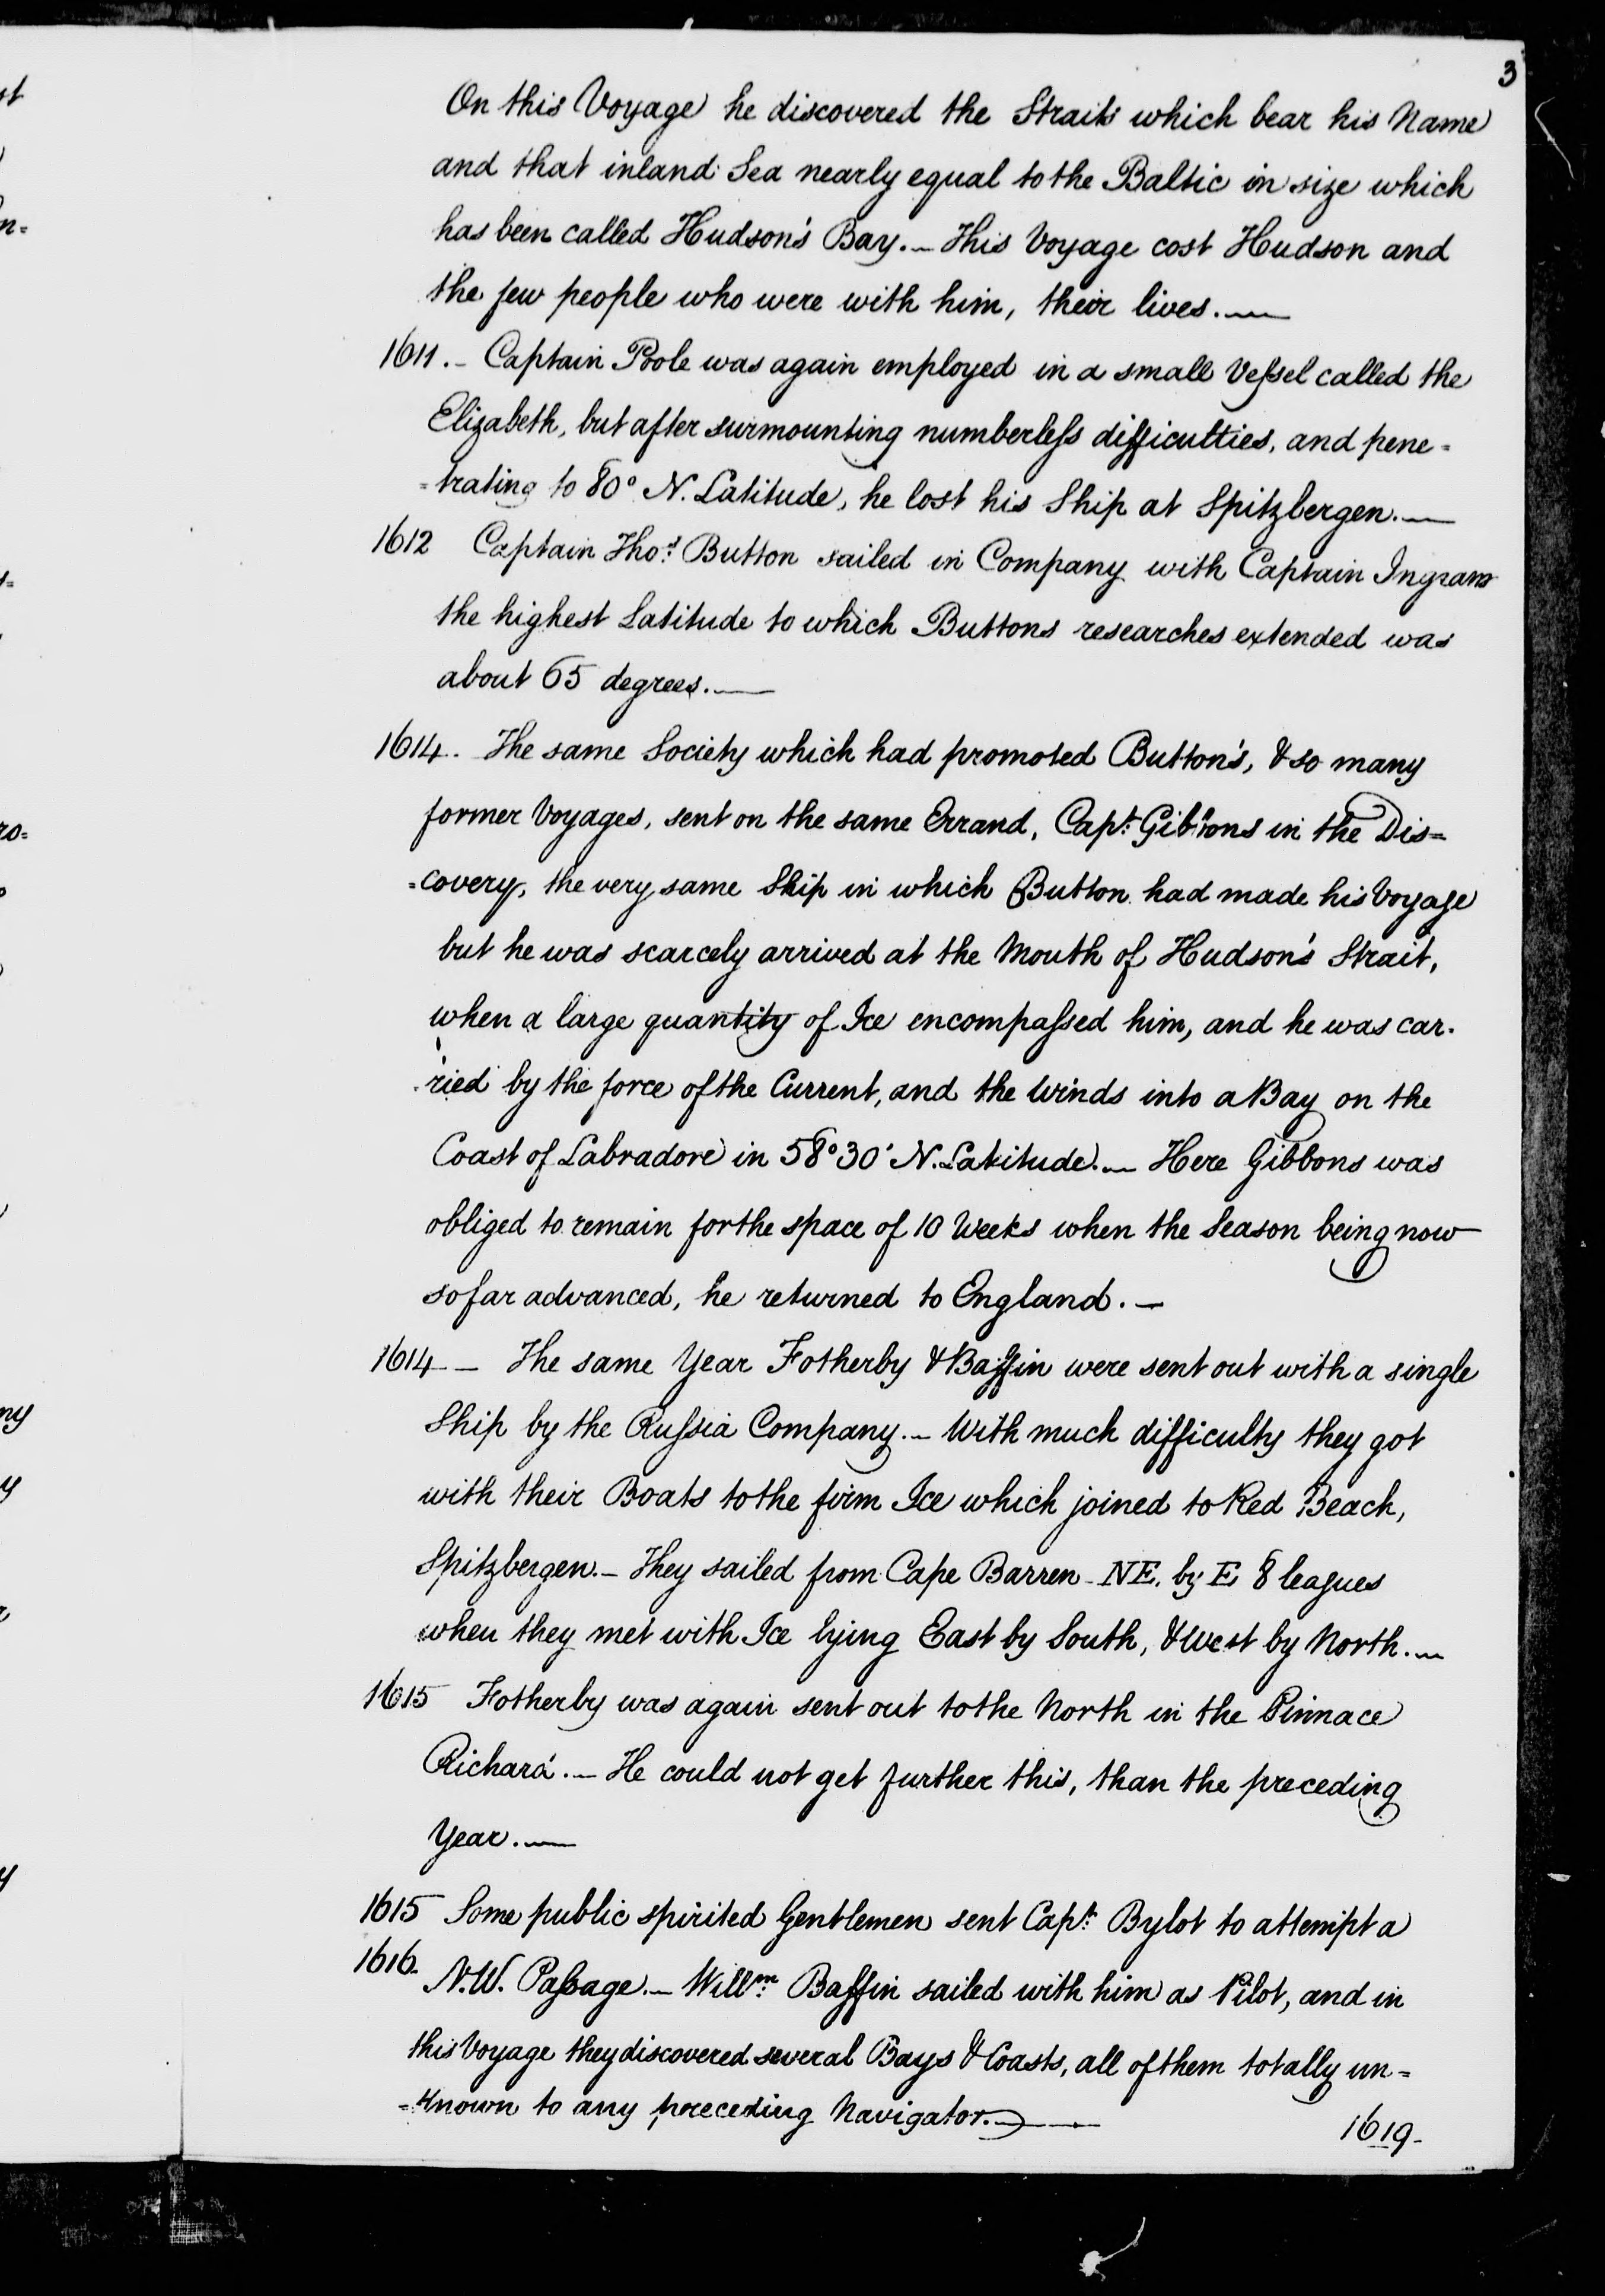 3
On this Voyage he discovered the Straits which bear his Name
and that inland Sea nearly equal to the Baltic in size which
has been called Hudson's Bay. — This Voyage cost Hudson and
the few people who were with him, their lives. —
1611. - Captain Poole was again employed in a small Veſsel called the
Elizabeth, but after surmounting numberleſs difficulties, and pene =
= trating to 80° N. Latitude, he lost his Ship at Spitzbergen. —
1612 Captain Thos. Button sailed in Company with Captain Ingram
the highest Latitude to which Buttons researches extended was
about 65 degrees. —
1614. The same Society which had promoted Button's, & so many
former Voyages, sent on the same Errand, Capt. Gibbons in the Dis=
=covery, the very same Ship in which Button had made his Voyage
but he was scarcely arrived at the Mouth of Hudson's Strait,
when a large quantity of Ice encompaſsed him, and he was car-
-ried by the force of the Current, and the Winds into a Bay on the
Coast of Labradore in 58° 30' N. Latitude. — Here Gibbons was
obliged to remain for the space of 10 Weeks when the Season being now
so far advanced, he returned to England. —
1614 — The same Year Fotherby & Baffin were sent out with a single
Ship by the Ruſsia Company. — With much difficulty they got
with their Boats to the firm Ice which joined to Red Beach,
Spitzbergen. — They sailed from Cape Barren - NE. by E 8 leagues
when they met with Ice lying East by South, & West by North. —
1615 Fotherby was again sent out to the North in the Pinnace
Richard. — He could not get further this, than the preceding
Year. —
1615 Some public spirited Gentlemen sent Capt. Bylot to attempt a
1616. N.W. Paſsage. — Willm. Baffin sailed with him as Pilot, and in
this Voyage they discovered several Bays & Coasts, all of them totally un =
= known to any preceding Navigator. —
1619-